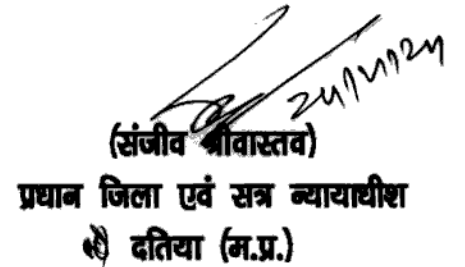 (संजीव श्रीवास्तव)
प्रधान जिला एवं सत्र न्यायाधीश
दतिया (म.प्र.)